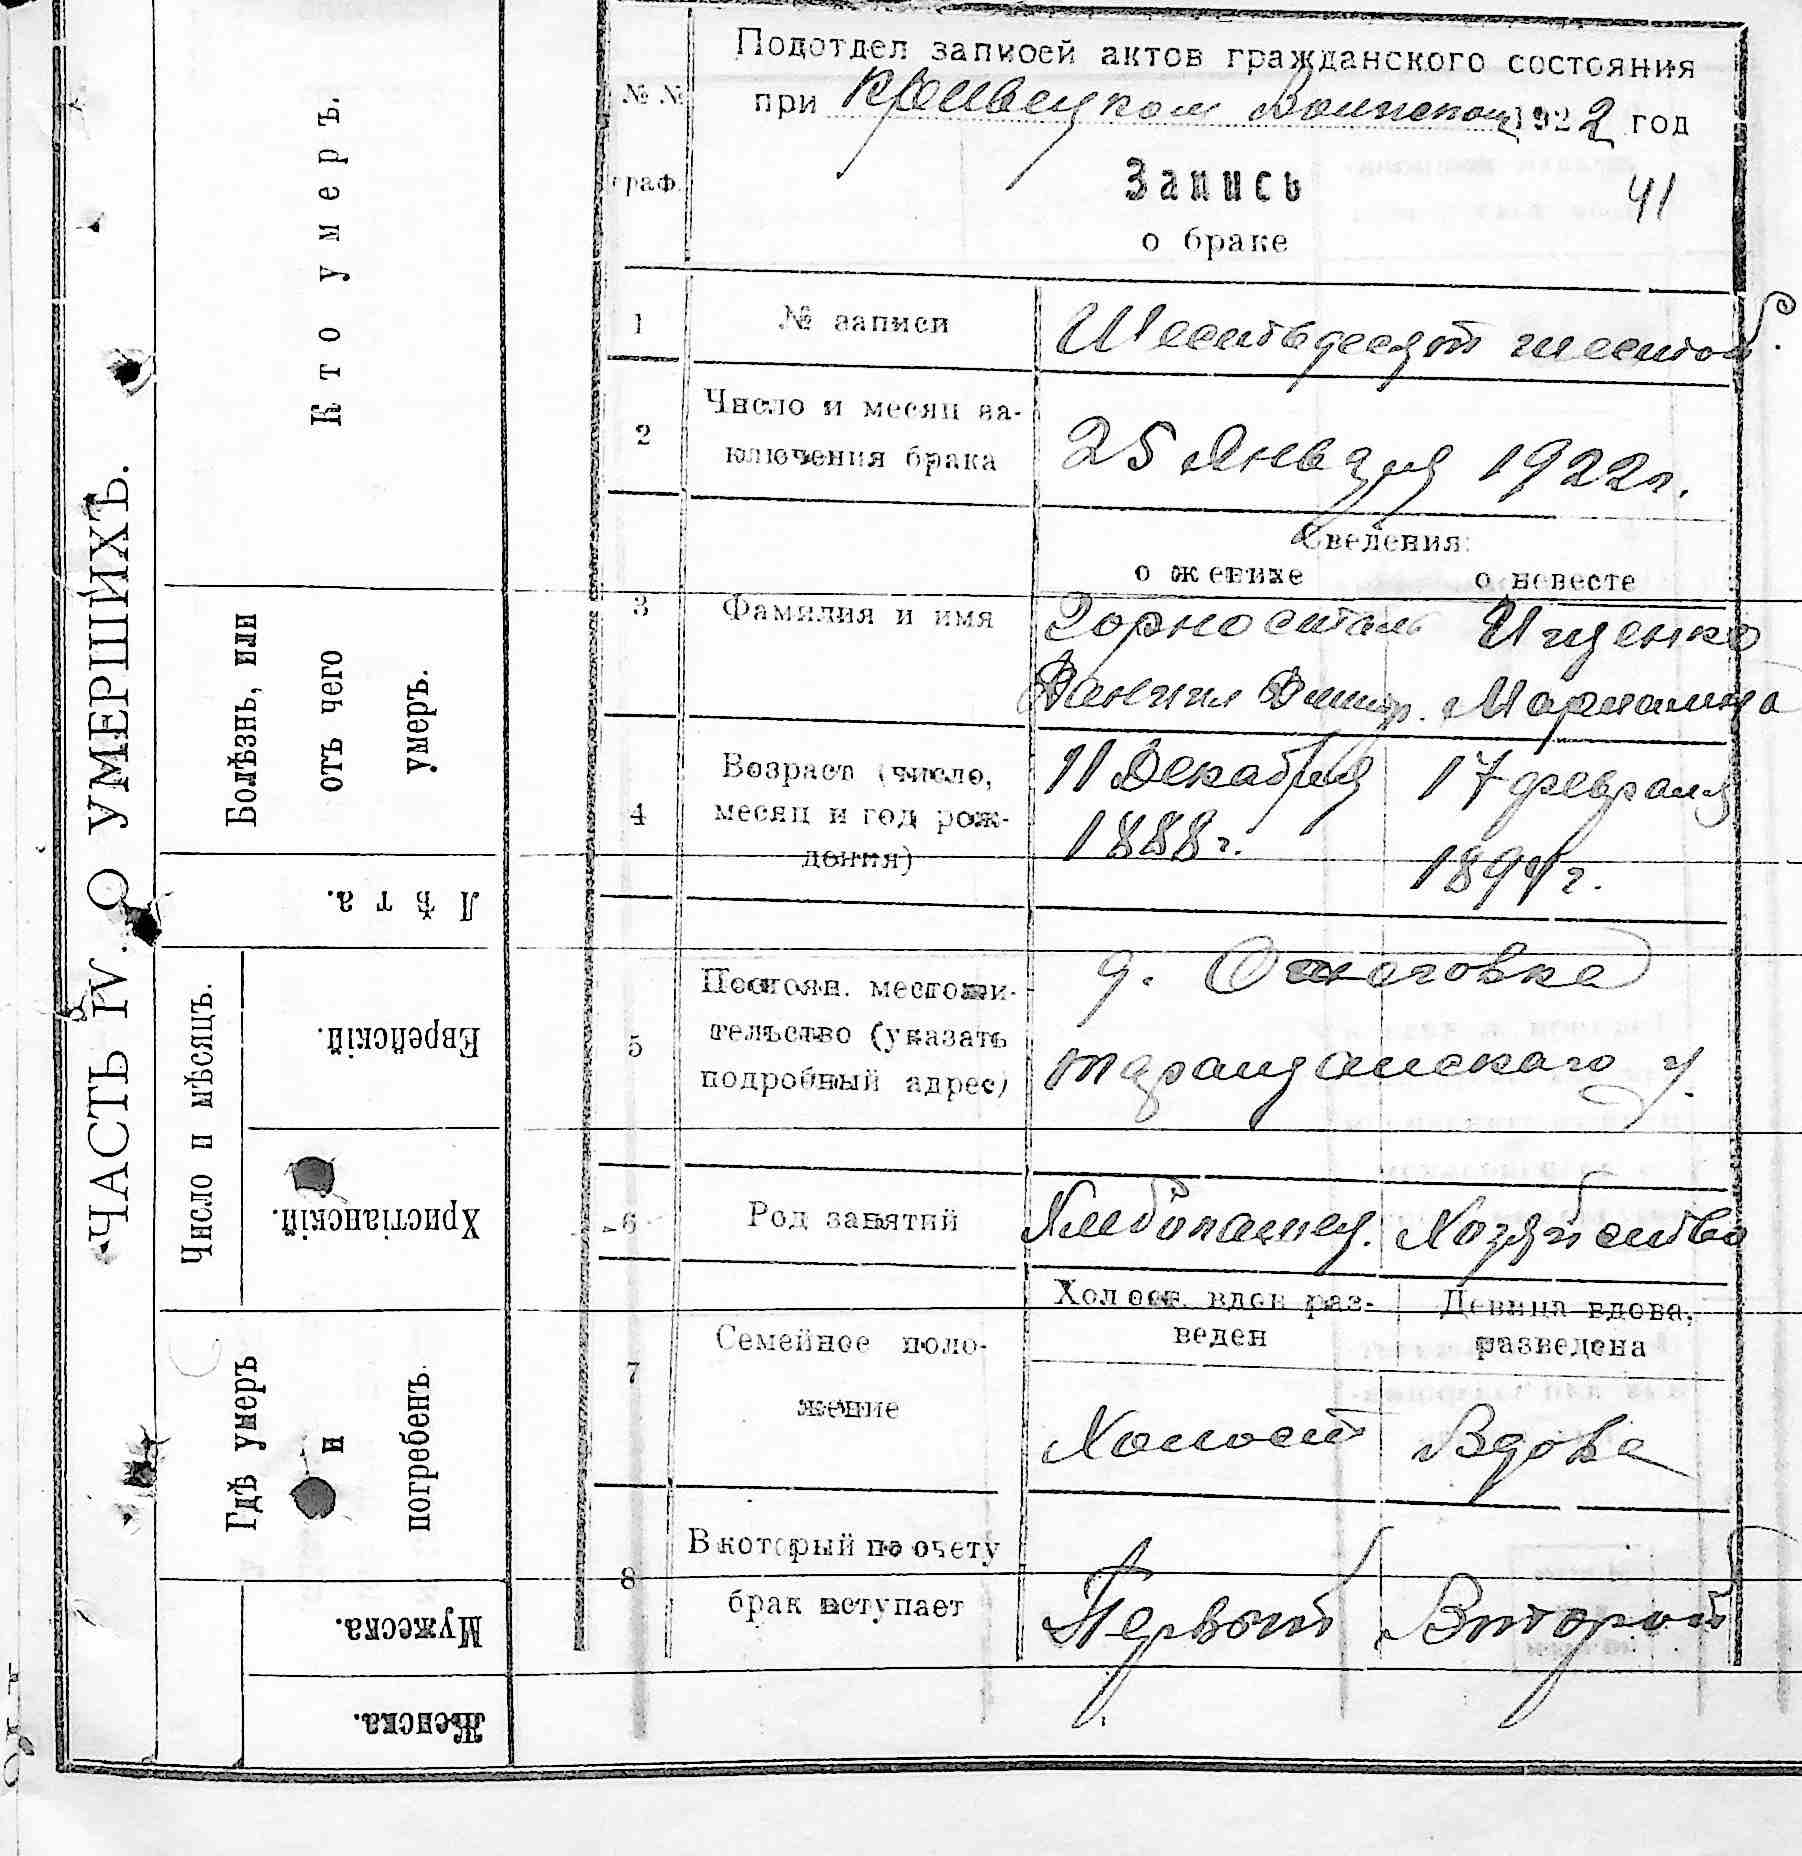 ЧАСТЬ IV. О УМЕРШИХЪ.
Кто умеръ.
Болѣзнь, или
отъ чего
умеръ.
Лѣта.
Число и мѣсяцъ.
Еврейскій.
Христіанскій.
Гдѣ умеръ
и
погребенъ.
Мужеска.
Женска.
Подотдел записей актов гражданского состояния
№ №
при Кривецком Волисполк 1922 год
граф.
Запись
41
о браке
1
№ записи
Шестьдесят шестой
2
Число и месяц за-
ключения брака
25 Января 1922г.
Сведения:
о женихе
о невесте
3
Фамилия и имя
Горносталь
Ищенко
Даниил Димитр.
4
Возраст (число,
месяц и год рож-
дения)
11 Декабря
1888г.
17 февраля
1894г.
5
Постоян. местожи-
тельство (указать
подробный адрес)
д.
Таращанского у.
6
Род занятий
Хлебопашец.
Хозяйство
7
Семейное поло-
жение
Холост, вдов раз-
веден
Девица вдова,
разведена
Холост
Вдова
8
В который по счету
брак вступает
Первый
Второй